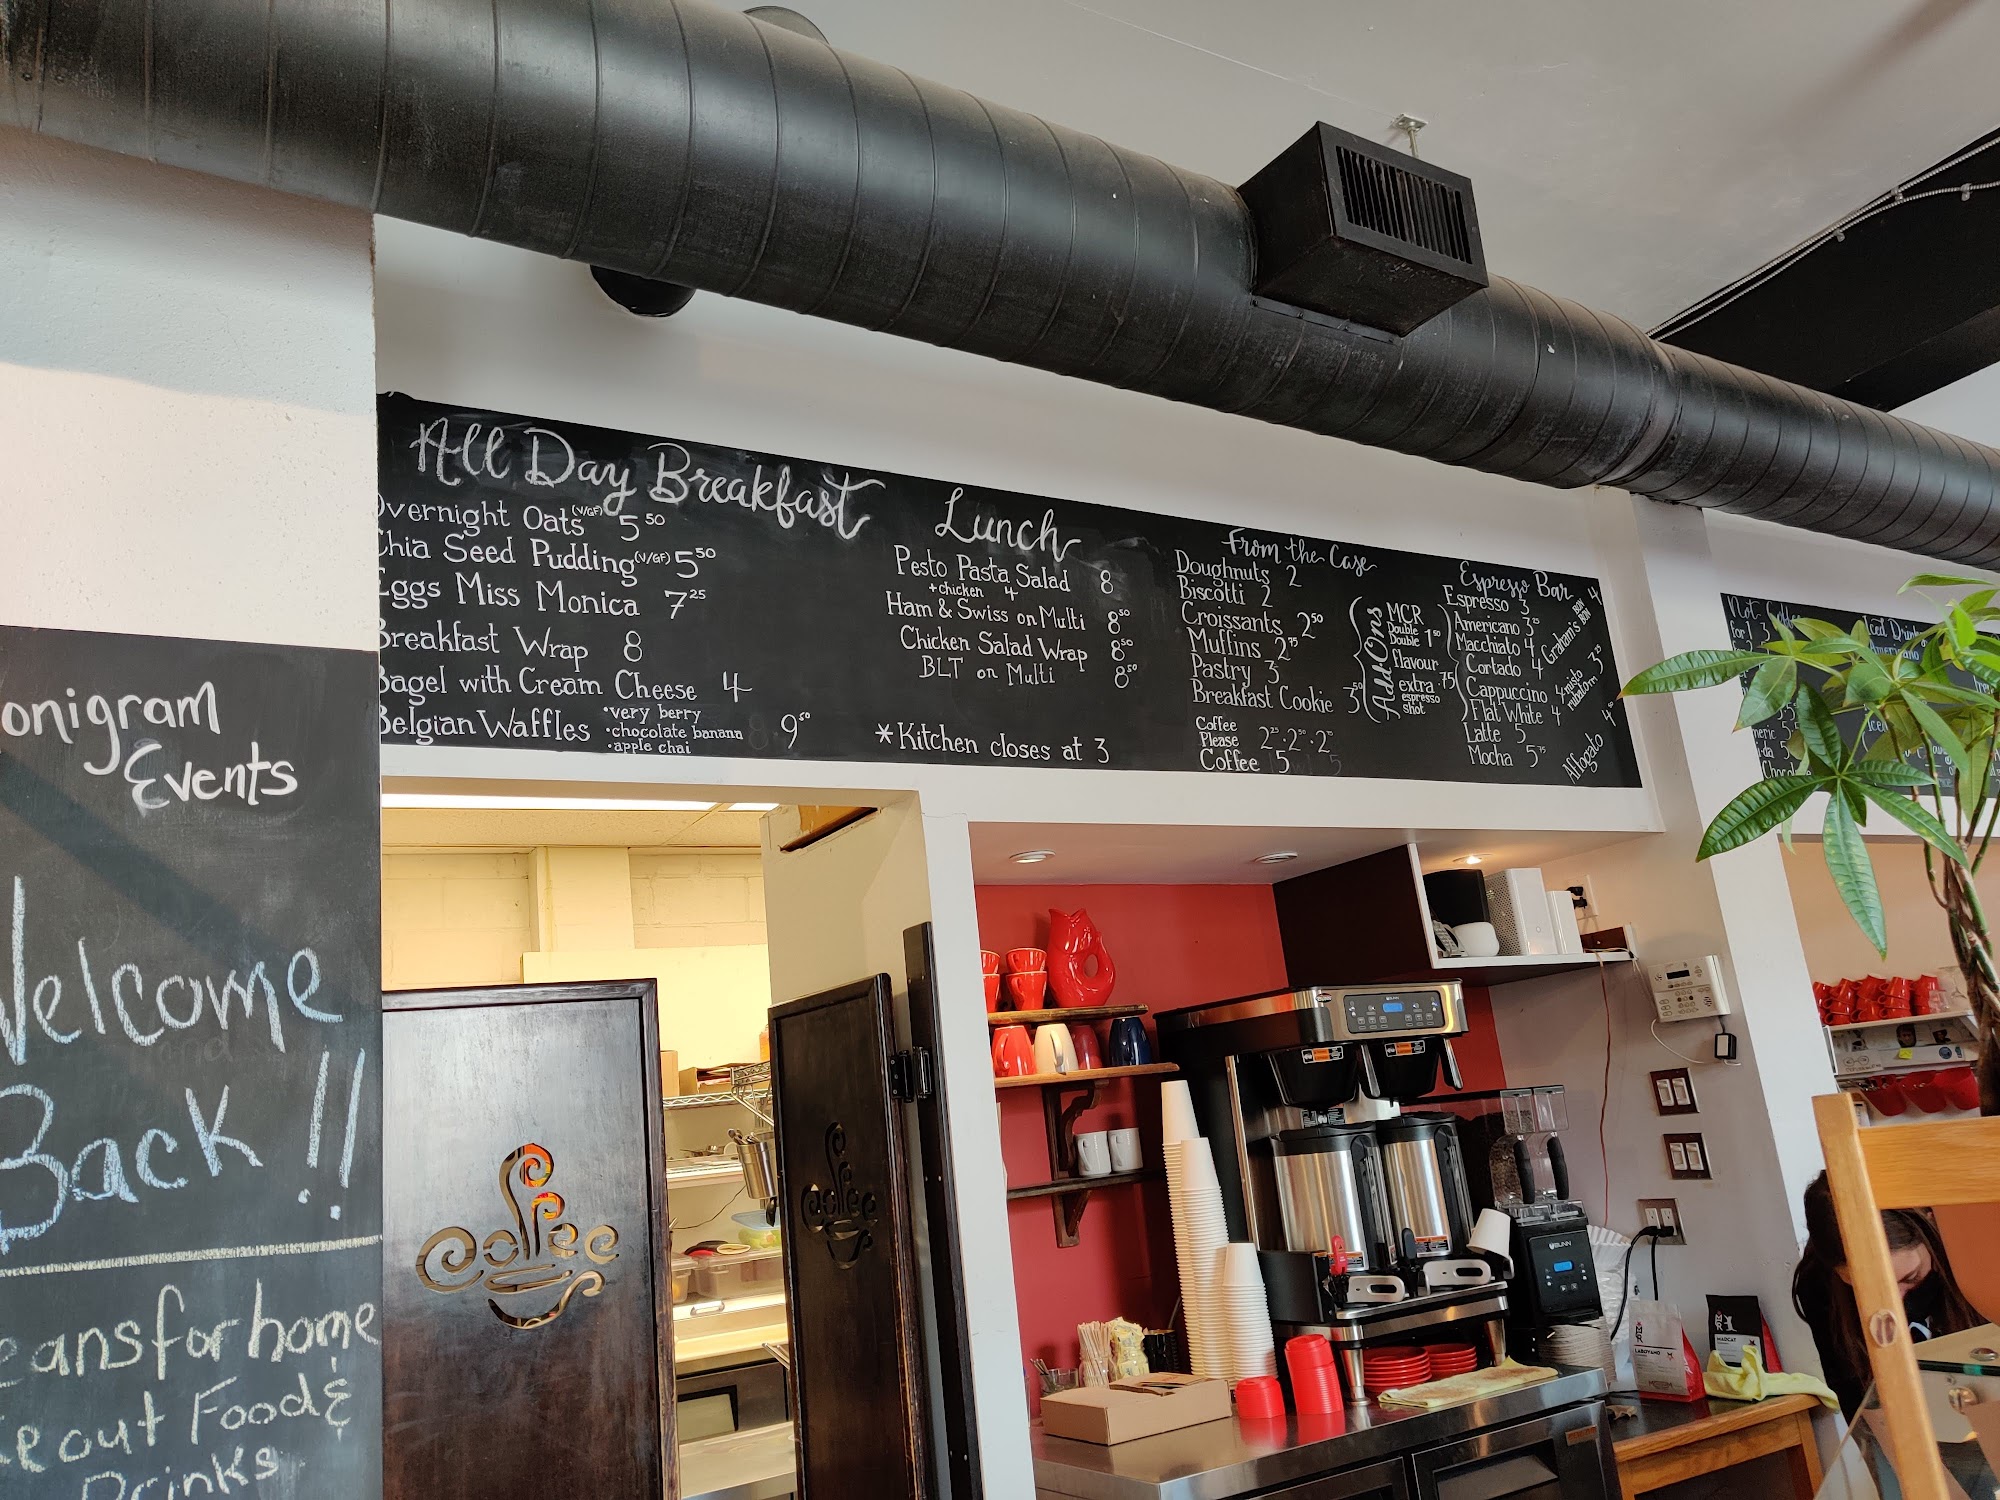 onigram
Events
Welcome
Back!!
eansforhome
eout Food &
Drinks
All Day Breakfast
Overnight Oats (V/GF) 5 50
Chia Seed Pudding (V/GF) 5 50
Eggs Miss Monica 7 25
Breakfast Wrap 8
Bagel with Cream Cheese 4
Belgian Waffles 9 50
•very berry
•chocolate banana
•apple chai
Lunch
Pesto Pasta Salad 8
+chicken 4
Ham & Swiss on Multi 8 50
Chicken Salad Wrap 8 50
BLT on Multi 8 50
*Kitchen closes at 3
From the Case
Doughnuts 2
Biscotti 2
Croissants 2 50
Muffins 2 75
Pastry 3
Breakfast Cookie 3 50
Coffee
Please
Coffee 5
Add Ons
MCR
Double
Double 1 50
flavour
extra .75
espresso
shot
Espresso Bar
Espresso 3
Americano 3 25
Macchiato 4
Cortado 4
Cappuccino 4
Flat White 4
Latte 5
Mocha 5 75
Graham's Bon Bon 4
Affogato 4 50
coffee
coffee
BUNN
LABOYANO
MADCAT